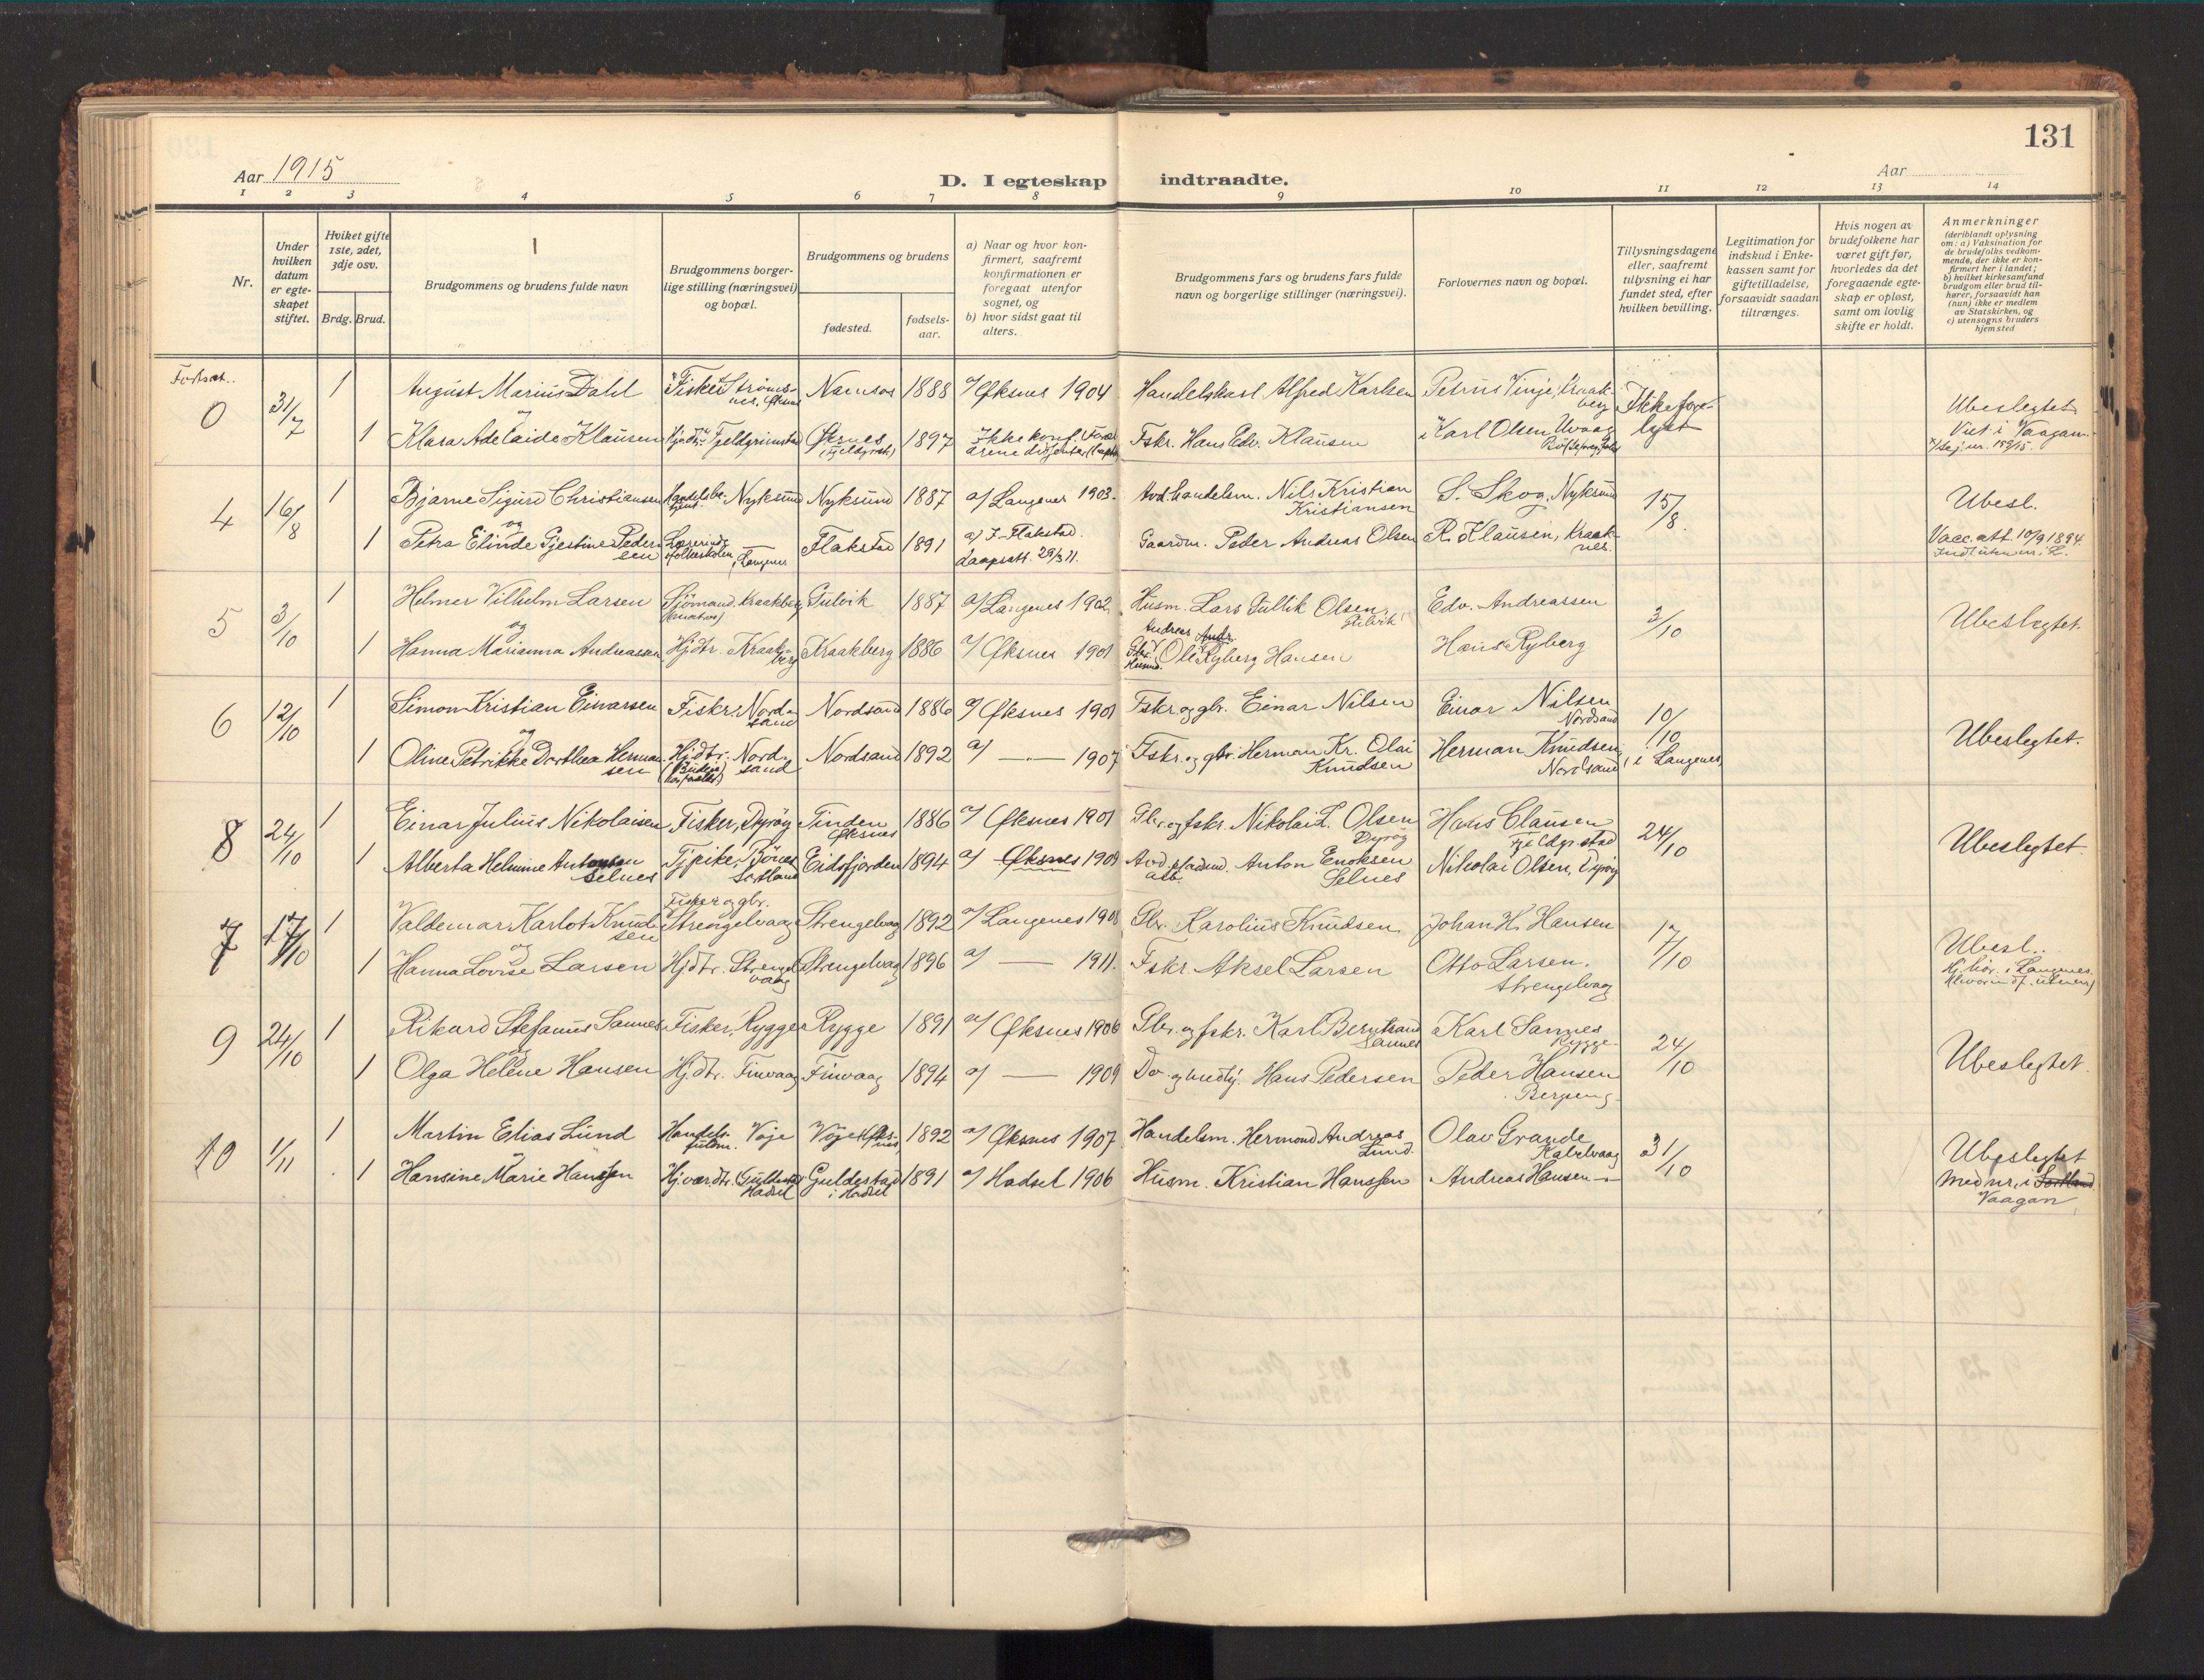 131
Aar 1915
D. I egteskap indtraadte.
Aar
1 2 3 4 5 6 7 8 9 10 11 12 13 14
Nr.
Under hvilken datum er egteskapet stiftet.
Hviket gifte 1ste, 2det, 3dje osv.
Brdg. Brud.
Brudgommens og brudens fulde navn
Brudgommens borgerlige stilling (næringsvei) og bopæl.
Brudgommens og brudens
fødested.
fødselsaar.
a) Naar og hvor konfirmert, saafremt konfirmationen er foregaat utenfor sognet, og
b) hvor sidst gaat til alters.
Brudgommens fars og brudens fars fulde navn og borgerlige stillinger (næringsvei).
Forlovernes navn og bopæl.
Tillysningsdagene eller, saafremt tillysning ei har fundet sted, efter hvilken bevilling.
Legitimation for indskud i Enkekassen samt for giftetilladelse, forsaavidt saadan tiltrænges.
Hvis nogen av brudefolkene har været gift før, hvorledes da det foregaaende egteskap er opløst, samt om lovlig skifte er holdt.
Anmerkninger (deriblandt oplysning om: a) Vaksination for de brudefolks vedkommende, der ikke er konfirmert her i landet; b) hvilket kirkesamfund brudgom eller brud tilhører, forsaavidt han (hun) ikke er medlem av Statskirken, og c) utensogns bruders hjemsted
Fortsat..
0 31/7 1 August Marius Dahl Fisker Strømsnes, Øksnes Namsos 1888 a/ Øksnes 1904 Handelskarl Alfred Karlsen Petrus Vinje, Kraakberg Ikke forelyst Ubeslegtet
og
1 Klara Adelaide Klausen Hjdtr. Fjeldgrimstad Øksnes 1897 Ikke konf. Fskr. Hans Edv. Klausen Karl Olsen Uvaag Viet i Vaagan
4 16/8 1 Bjarne Sigurd Christiansen Handelsbetjent. Nyksund Nyksund 1887 a/ Langenes 1903. Avd. handelsm. Nils Kristian Kristiansen S. Skog, Nyksund 15/8. Ubesl.
og
1 Petra Elinde Gjestine Pedersen Lærerinde folkeskolen, Langenes Flakstad 1891 a/ F. Flakstad. Daapsatt. 29/3 11. Gaardm. Peder Andreas Olsen R. Klausen, Kraaknes. Vacc. att. 10/9 1894.
5 3/10 1 Helmer Vilhelm Larsen Sjømand. Kraakberg Gulvik 1887 a/ Langenes 1902 Husm. Lars Gullik Olsen Edv. Andreassen 3/10 Ubeslegtet.
og
1 Hanna Marianna Andreassen Hjdtr. Kraakberg Kraakberg 1886 a/ Øksnes 1901 Ole Ryberg Hansen Hans Ryberg
6 12/10 1 Simon Kristian Einarsen Fiskr. Nordsand Nordsand 1886 a/ Øksnes 1901 Fskr. og gbr. Einar Nilsen Einar Nilsen Nordsand 10/10 i Langenes Ubeslegtet.
og
1 Oline Petrikke Dorthea Hermansen Hjdtr. Nordsand Nordsand 1892 a/ — 1907 Fskr. og gbr. Herman Kr. Olai Knudsen Herman Knudsen, Nordsand
8 24/10 1 Einar Julius Nikolaisen Fisker, Dyrøy Tinden Øksnes 1886 a/ Øksnes 1901 Gbr. og fskr. Nikolai L. Olsen Dyrøy Hans Clausen Fjeldgr.stad 24/10 Ubeslegtet.
1 Alberta Helmine Antonsen Selnes Tjpike, Sortland Eidsfjorden 1894 a/ Øksnes 1909 Avd. Anton Enoksen Selnes Nikolai Olsen, Dyrøy
7 17/10 1 Valdemar Karlot Knudsen Fisker og gbr. Strengelvaag Strengelvaag 1892 a/ Langenes 1908 Gbr. Karolius Knudsen Johan H. Hansen 17/10 Ubesl.
og
1 Hanna Lovise Larsen Hjdtr. Strengelvaag Strengelvaag 1896 a/ — 1911. Fskr. Aksel Larsen Otto Larsen. Strengelvaag
9 24/10 1 Rikard Stefanus Sannes Fisker, Rygge Rygge 1891 a/ Øksnes 1906 Gbr. og fskr. Karl Berntsand Sannes Karl Sannes Rygge 24/10 Ubeslegtet.
og
1 Olga Helene Hansen Hjdtr. Finvaag Finvaag 1894 a/ — 1909 Do. Hans Pedersen Peder Hansen Bergeng
10 1/11 1 Martin Elias Lund Handelsfuldm. Vøje Vøje Øksnes 1892 a/ Øksnes 1907 Handelsm. Hermod Andreas Lund. Olav Grande Kabelvaag 31/10 Ubeslegtet
1 Hansine Marie Hanssen Hj.vær.dtr. Guldestad Hadsel Guldestad i Hadsel 1891 a/ Hadsel 1906 Husm. Kristian Hanssen Andreas Hansen — Med nr. i Sortland Vaagan